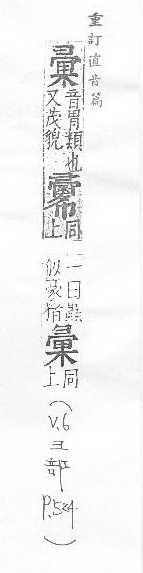 重訂直音篇
彙
音胃類也
又茂貌
同
上
一曰
似豪猪
彙
同
上
(V.6
彐部
P.524)